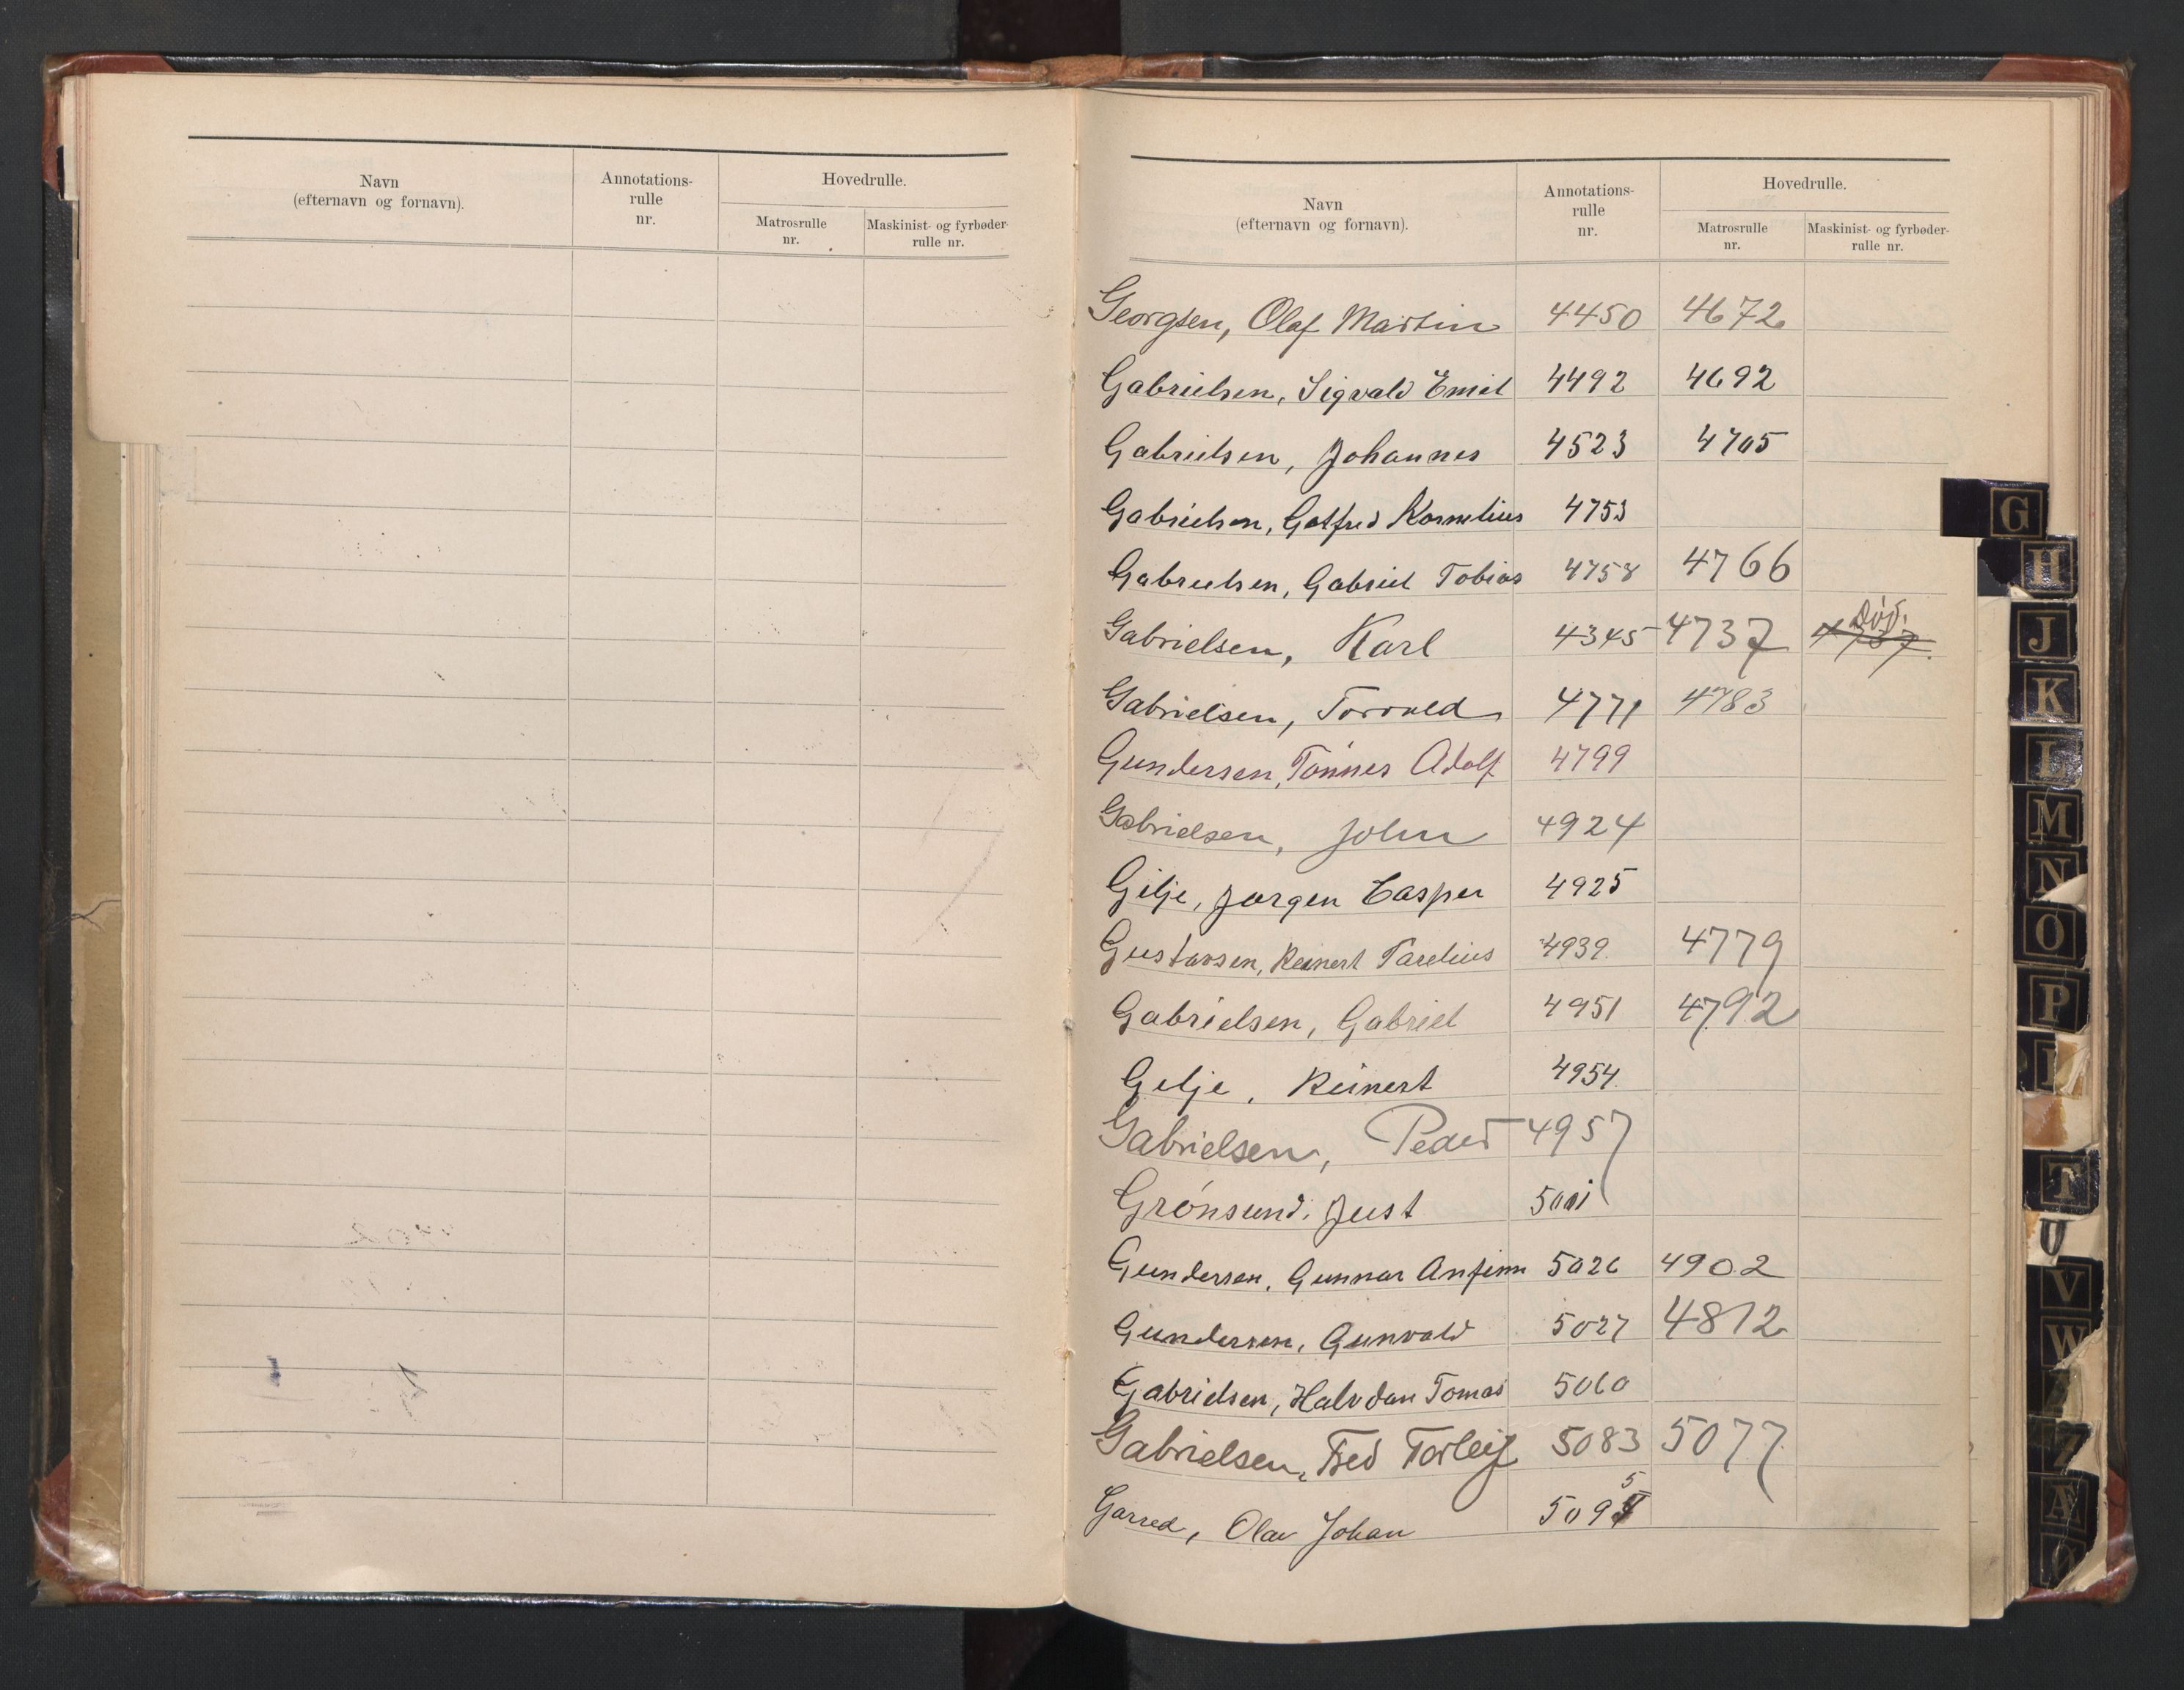 Navn
(efternavn og fornavn).
Annotations-
rulle
nr.
Hovedrulle.
Matrosrulle
nr.
Maskinist- og fyrbøder-
rulle nr.
Navn
(efternavn og fornavn).
Annotations-
rulle
nr.
Hovedrulle.
Matrosrulle
nr.
Maskinist- og fyrbøder-
rulle nr.
Georgsen, Olaf Martin 4450 4672
Gabrielsen, Sigvald Emil 4492 4692
Gabrielsen, Johannes 4523 4705
Gabrielsen, Gotfred Kornelius 4753
Gabrielsen, Gabriel Tobias 4758 4766
Gabrielsen, Karl 4345 4737 4737 Død.
Gabrielsen, Torvald 4771 4783
Gundersen, Tønnes Adolf 4799
Gabrielsen, John 4924
Gilje, Jørgen Casper 4925
Gustavsen, Reinert Tarelius 4939 4779
Gabrielsen, Gabriel 4951 4792
Gilje, Reinert 4954
Gabrielsen, Peder 4957
Grønsund, Just 5001
Gundersen, Gunnar Anfinn 5026 4902
Gundersen, Gunvald 5027 4812
Gabrielsen, Halvdan Tomas 5060
Gabrielsen, Fred Torleif 5083 5077
Garred, Olav Johan 5095
G
H
J
K
L
M
N
O
P
T
U
V
W
Æ